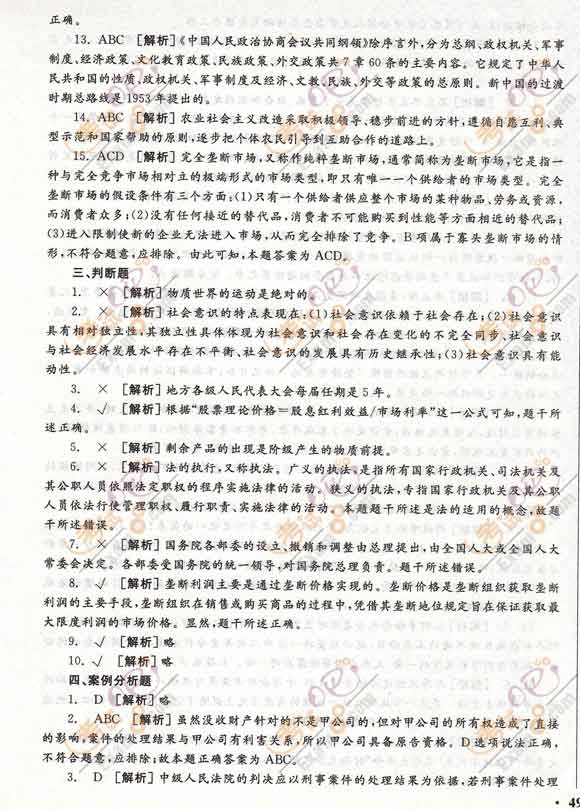 正确。
13. ABC [解析]《中国人民政治协商会议共同纲领》除序言外,分为总纲、政权机关、军事
制度、经济政策、文化教育政策、民族政策、外交政策共 7 章 60 条的主要内容。它规定了中华人
民共和国的性质、政权机关、军事制度及经济、文教、民族、外交等政策的总原则。新中国的过渡
时期总路线是 1953 年提出的。
14. ABC [解析] 农业社会主义改造采取积极领导、稳步前进的方针,遵循自愿互利、典
型示范和国家帮助的原则,逐步把个体农民引导到互助合作的道路上。
15. ACD [解析] 完全垄断市场,又称作纯粹垄断市场,通常简称为垄断市场,它是指一
种与完全竞争市场相对立的极端形式的市场类型,即只有唯一一个供给者的市场类型。完全
垄断市场的假设条件有三个方面:(1)只有一个供给者供应整个市场的某种物品、劳务或资源,
而消费者众多;(2)没有任何接近的替代品,消费者不可能购买到性能等方面相近的替代品;
(3)进入限制使新的企业无法进入市场,从而完全排除了竞争。B 项属于寡头垄断市场的情
形,不符合题意,应排除。由此可知,本题答案为 ACD。
三、判断题
1. × [解析] 物质世界的运动是绝对的。
2. × [解析] 社会意识的特点表现在:(1)社会意识依赖于社会存在;(2)社会意识
具有相对独立性,其独立性具体体现为社会意识和社会存在变化的不完全同步、社会意识
与社会经济发展水平存在不平衡、社会意识的发展具有历史继承性;(3)社会意识具有能
动性。
3. × [解析] 地方各级人民代表大会每届任期是 5 年。
4. √ [解析] 根据“股票理论价格=股息红利效益/市场利率”这一公式可知,题干所
述正确。
5. × [解析] 剩余产品的出现是阶级产生的物质前提。
6. × [解析] 法的执行,又称执法。广义的执法,是指所有国家行政机关、司法机关及
其公职人员依照法定职权的程序实施法律的活动。狭义的执法,专指国家行政机关及其公职
人员依法行使管理职权、履行职责、实施法律的活动。本题题干所述是法的适用的概念,故题
干所述错误。
7. × [解析] 国务院各部委的设立、撤销和调整由总理提出,由全国人大或全国人大
常委会决定。各部委受国务院的统一领导,对国务院总理负责。题干所述错误。
8. √ [解析] 垄断利润主要是通过垄断价格实现的。垄断价格是垄断组织获取垄断
利润的主要手段,垄断组织在销售或购买商品的过程中,凭借其垄断地位规定旨在保证获取最
大限度利润的市场价格。显然,题干所述正确。
9. √ [解析] 略
10. √ [解析] 略
四、案例分析题
1. D [解析] 略
2. ABC [解析] 虽然没收财产针对的不是甲公司的,但对甲公司的所有权造成了直接
的影响,案件的处理结果与甲公司有利害关系,所以甲公司具备原告资格。D 选项说法正确,
不符合题意,应排除;故本题正确答案为 ABC。
3. D [解析] 中级人民法院的判决应以刑事案件的处理结果为依据,若刑事案件处理